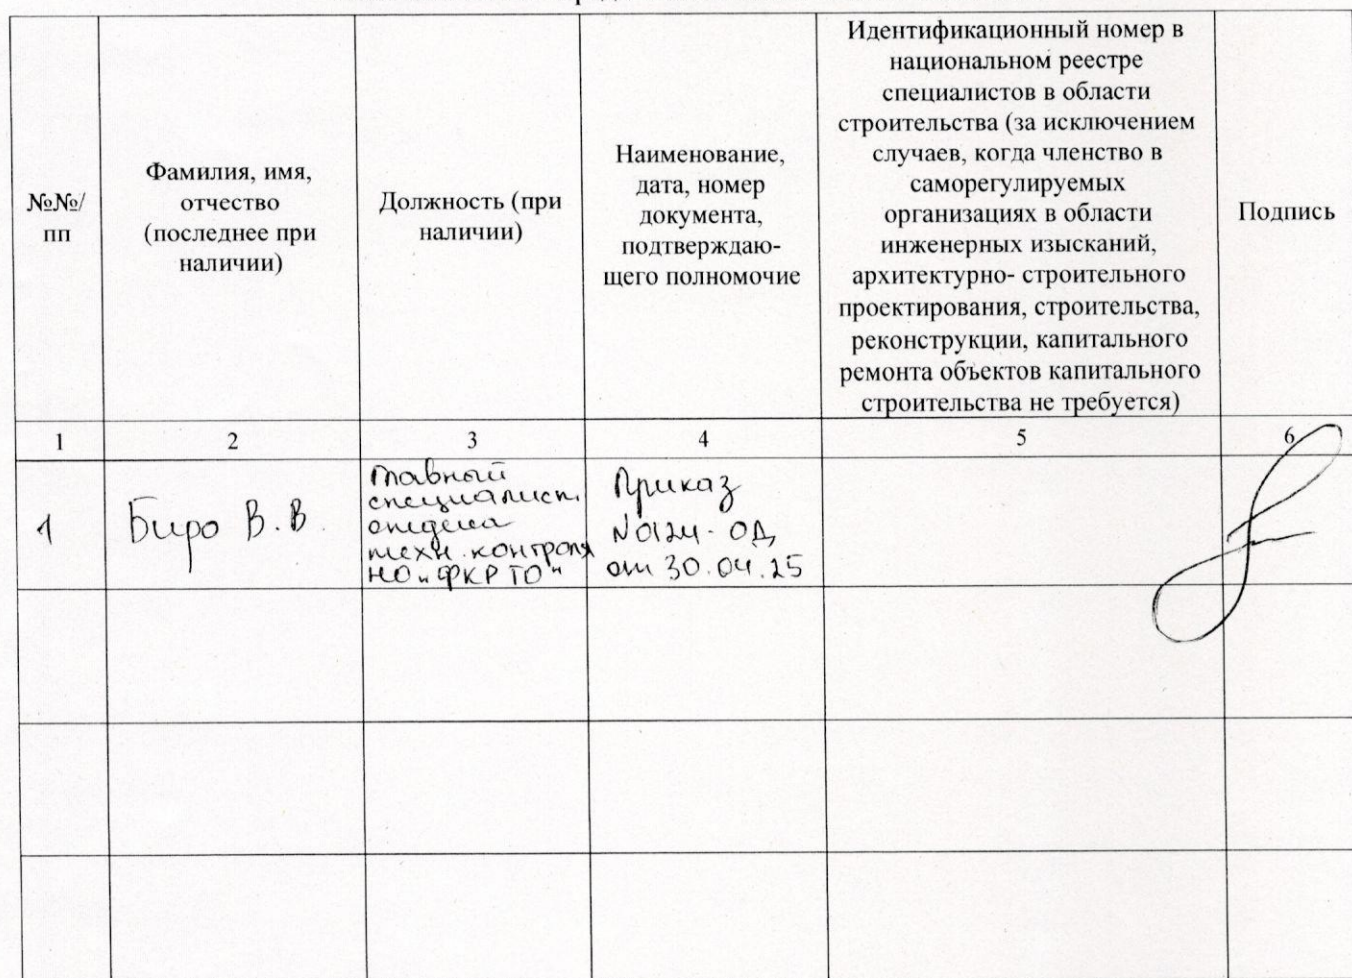 №№/
пп
Фамилия, имя,
отчество
(последнее при
наличии)
Должность (при
наличии)
Наименование,
дата, номер
документа,
подтверждаю-
щего полномочие
Идентификационный номер в
национальном реестре
специалистов в области
строительства (за исключением
случаев, когда членство в
саморегулируемых
организациях в области
инженерных изысканий,
архитектурно- строительного
проектирования, строительства,
реконструкции, капитального
ремонта объектов капитального
строительства не требуется)
Подпись
1
2
3
4
5
6
1
Биро В.В.
Главный
специалист
отдела
техн. контроля
НО "ФКР ТО"
Приказ
№124-ОД
от 30.04.25